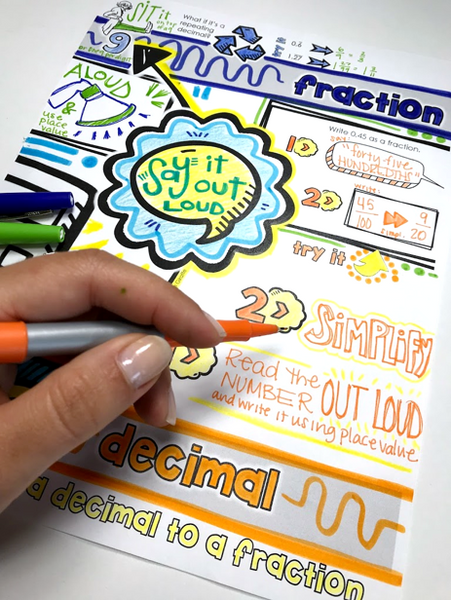 SIT it
on top
of
What if it's a
repeating
decimal?
9
0.6
1.27
fraction
ALOUD
&
use
place
value
Say it
out
LOUD
Write 0.45 as a fraction.
1
say:
"forty five
HUNDREDTHS"
2
write:
45
100
simpl.
9
20
try it
2
SIMPLIFY
Read the
NUMBER OUT LOUD
and write it using place value
decimal
a decimal to a fraction